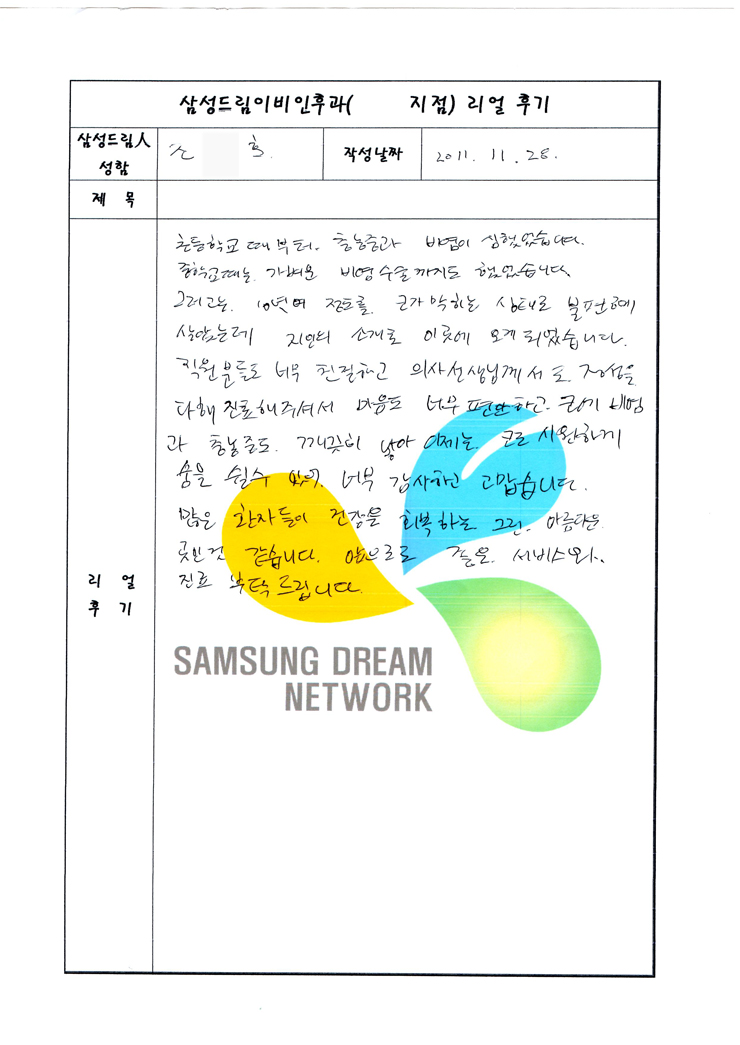 삼성드림이비인후과( 지점) 리얼 후기
삼성드림人 성함
손 호
작성날짜
2011. 11. 28.
제 목
리 얼 후 기
초등학교 때부터. 충농증과 비염이 심했었습니다.
중학교때는 가벼운 비염수술까지도 했었습니다.
그러고는 10년여 정도를 코가 막히는 상태로 불편하게
살았는데 지인의 소개로 이곳에 오게 되었습니다.
직원분들도 너무 친절하고 의사선생님께서도 정성을
다해 진료해주셔서 마음도 너무 편안하고. 비염
과 충농증도. 깨끗히 낳아 이제는 코로 시원하게
숨을 쉴수 있어. 너무 감사하고 고맙습니다.
많은 환자들이 건강을 회복하는 그런. 아름다운
곳인것 같습니다. 앞으로도 좋은 서비스와.
진료 부탁드립니다.
SAMSUNG DREAM
NETWORK